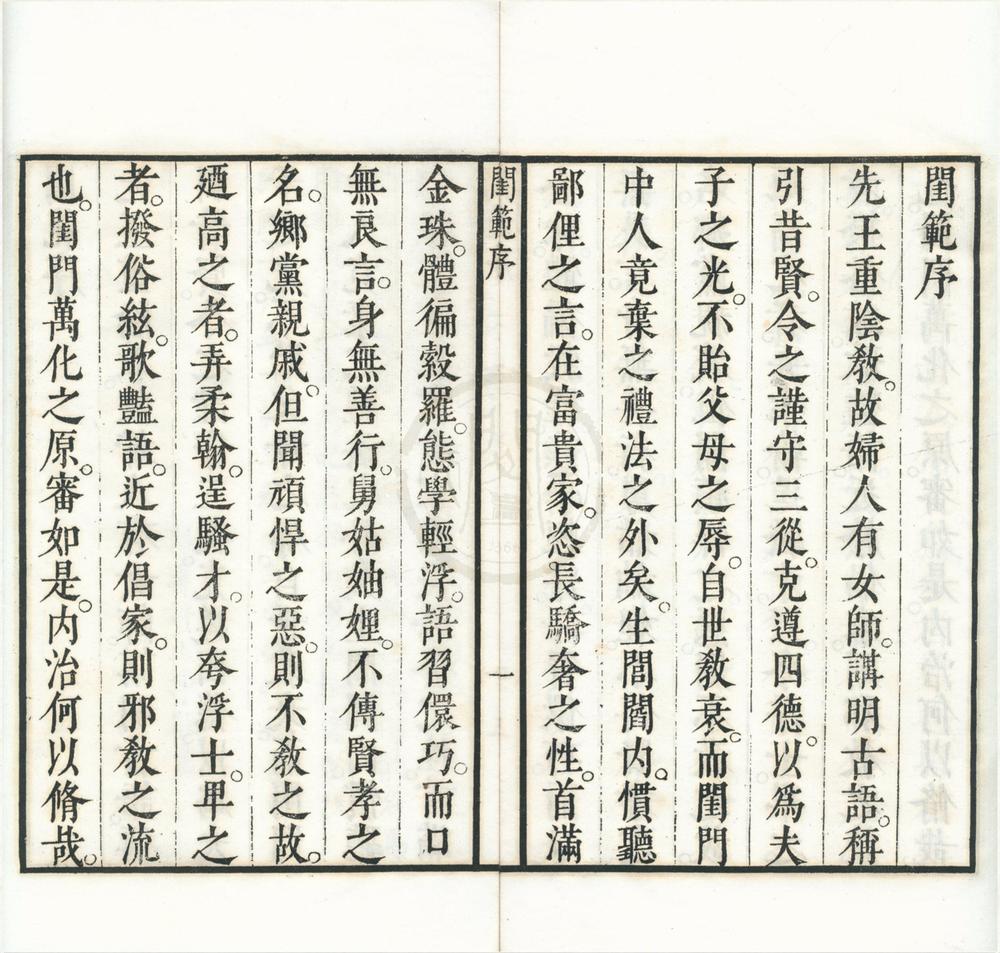 閨範序
先王重陰敎。故婦人有女師。講明古語。稱
引昔賢。令之謹守三從。克遵四德。以爲夫
子之光。不貽父母之辱。自世敎衰。而閨門
中人竟棄之禮法之外矣。生閭閻内。慣聽
鄙俚之言。在富貴家。恣長驕奢之性。首滿
閨範序
一
金珠。體徧縠羅。態學輕浮。語習儇巧。而口
無良言。身無善行。舅姑妯娌。不傳賢孝之
名。鄉黨親戚。但聞頑悍之惡。則不敎之故。
廼高之者。弄柔翰。逞騷才。以夸浮士。卑之
者。撥俗絃。歌豔語。近於倡家。則邪敎之流
也。閨門萬化之原。審如是。内治何以脩哉。